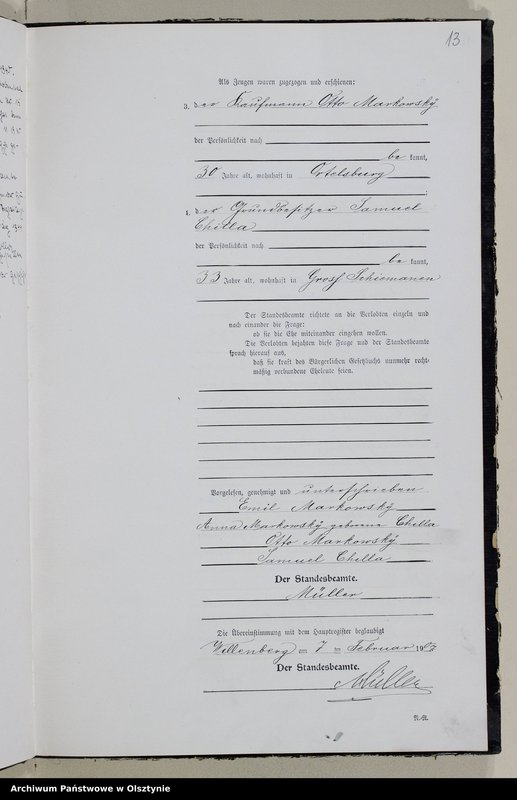 13
Als Zeugen waren zugezogen und erschienen:
3. der Kaufmann Otto Markowsky
der Persönlichkeit nach
be kannt,
30 Jahre alt, wohnhaft in Ortelsburg
;
4. der Grundbesitzer Samuel
Chilla
der Persönlichkeit nach
be kannt,
33 Jahre alt, wohnhaft in Groß Schiemanen
Der Standesbeamte richtete an die Verlobten einzeln und
nach einander die Frage:
ob sie die Ehe miteinander eingehen wollen.
Die Verlobten bejahten diese Frage und der Standesbeamte
sprach hierauf aus,
daß sie kraft des Bürgerlichen Gesetzbuchs nunmehr recht-
mäßig verbundene Eheleute seien.
Vorgelesen, genehmigt und unterschrieben
Emil Markowsky
Anna Markowsky geborene Chilla
Otto Markowsky
Samuel Chilla
Der Standesbeamte.
Müller
Die Übereinstimmung mit dem Hauptregister beglaubigt
Willenberg am 7 ten Februar
Der Standesbeamte.
Müller
Archiwum Państwowe w Olsztynie